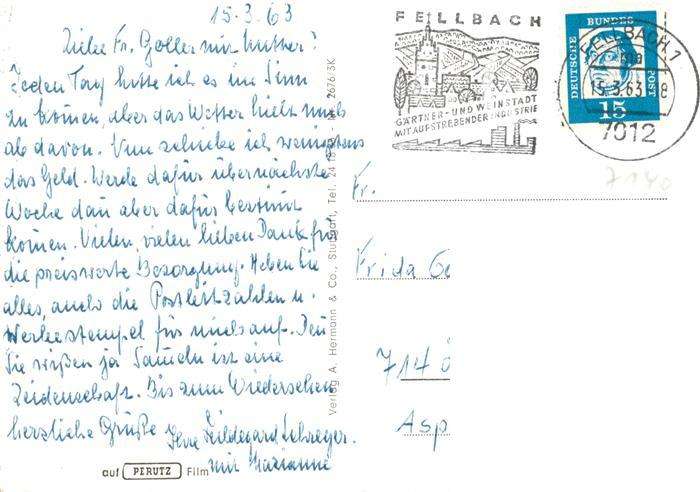 15.3.63
Liebe Fr. Goller mit Mutter!
Jeden Tag hatte ich es im Sinn
zu kommen, aber das Wetter hielt mich
ab davon. Nun schicke ich wenigstens
das Geld. Werde dafür übernächste
Woche dan aber dafür bestimt
kommen. Vielen, vielen lieben Dank für
die preiswerte Besorgung. Heben Sie
alles, auch die Postleitzahlen u.
Werbestempel für mich auf. Den
Sie wißen ja Sameln ist eine
Leidenschaft. Bis zum Wiedersehen
herzliche Grüße Ihre Hildegard
mit Marianne
auf PERUTZ Film
Verlag A. Hermann & Co., Stuttgart, Tel.
FELLBACH
GÄRTNER- UND WEINSTADT
MIT AUFSTREBENDER INDUSTRIE
DEUTSCHE BUNDESPOST
15
FELLBACH 1
15.3.63
7012
7140
Fr.
Frida G
7140
Asp